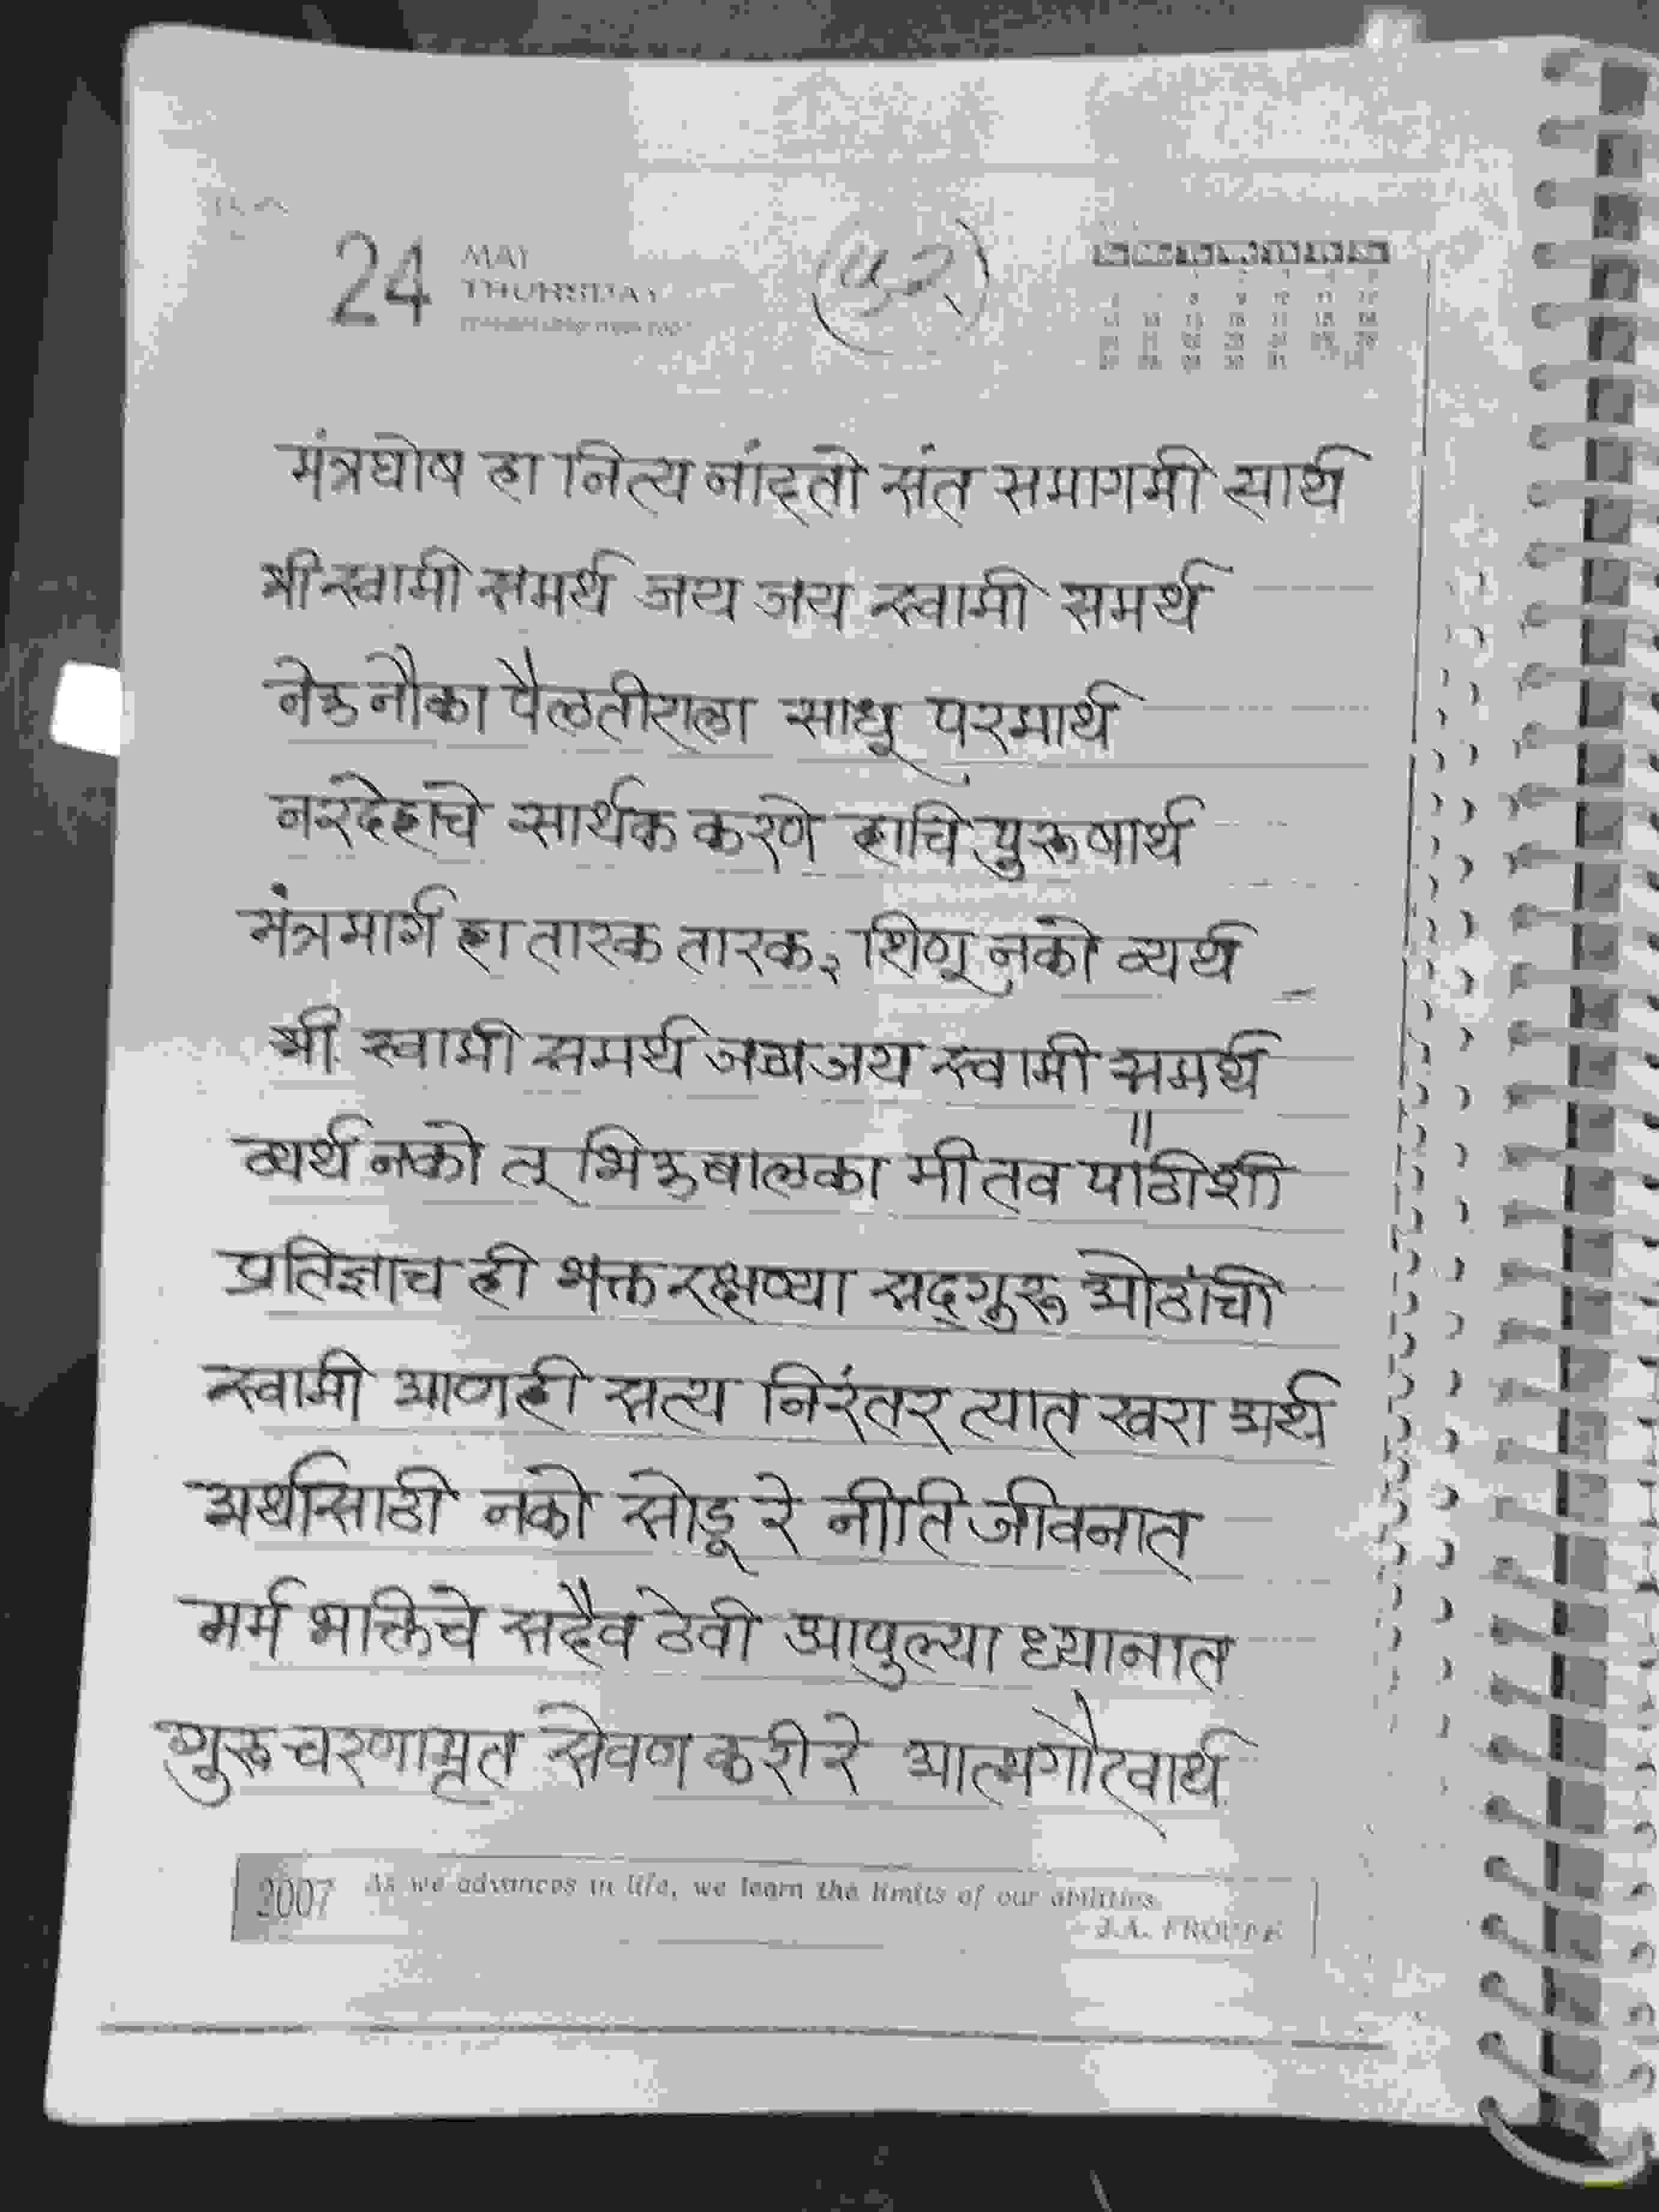 24 MAY
THURSDAY
मंत्रघोष हा नित्य नांदतो संत समागमी सार्थ
श्री स्वामी समर्थ जय जय स्वामी समर्थ
नेऊ नौका पैलतीराला साधु परमार्थ
नरदेहाचे सार्थक करणे हाचि पुरूषार्थ
मंत्रमार्ग हा तारक तारक, शिणू नको व्यर्थ
श्री स्वामी समर्थ जय जय स्वामी समर्थ
॥
व्यर्थ नको तू भिऊ बालका मी तव पाठीशी
प्रतिज्ञाच ही भक्त रक्षण्या सद्गुरू ओठांची
स्वामी आण ही सत्य निरंतर त्यात खरा अर्थ
अर्थासाठी नको सोडू रे नीति जीवनात
मर्म भक्तिचे सदैव ठेवी आपुल्या ध्यानात
गुरू चरणामृत सेवण करी रे आत्मगौरवार्थ
2007 As we advances in life, we learn the limits of our abilities.
J.A. FROUDE